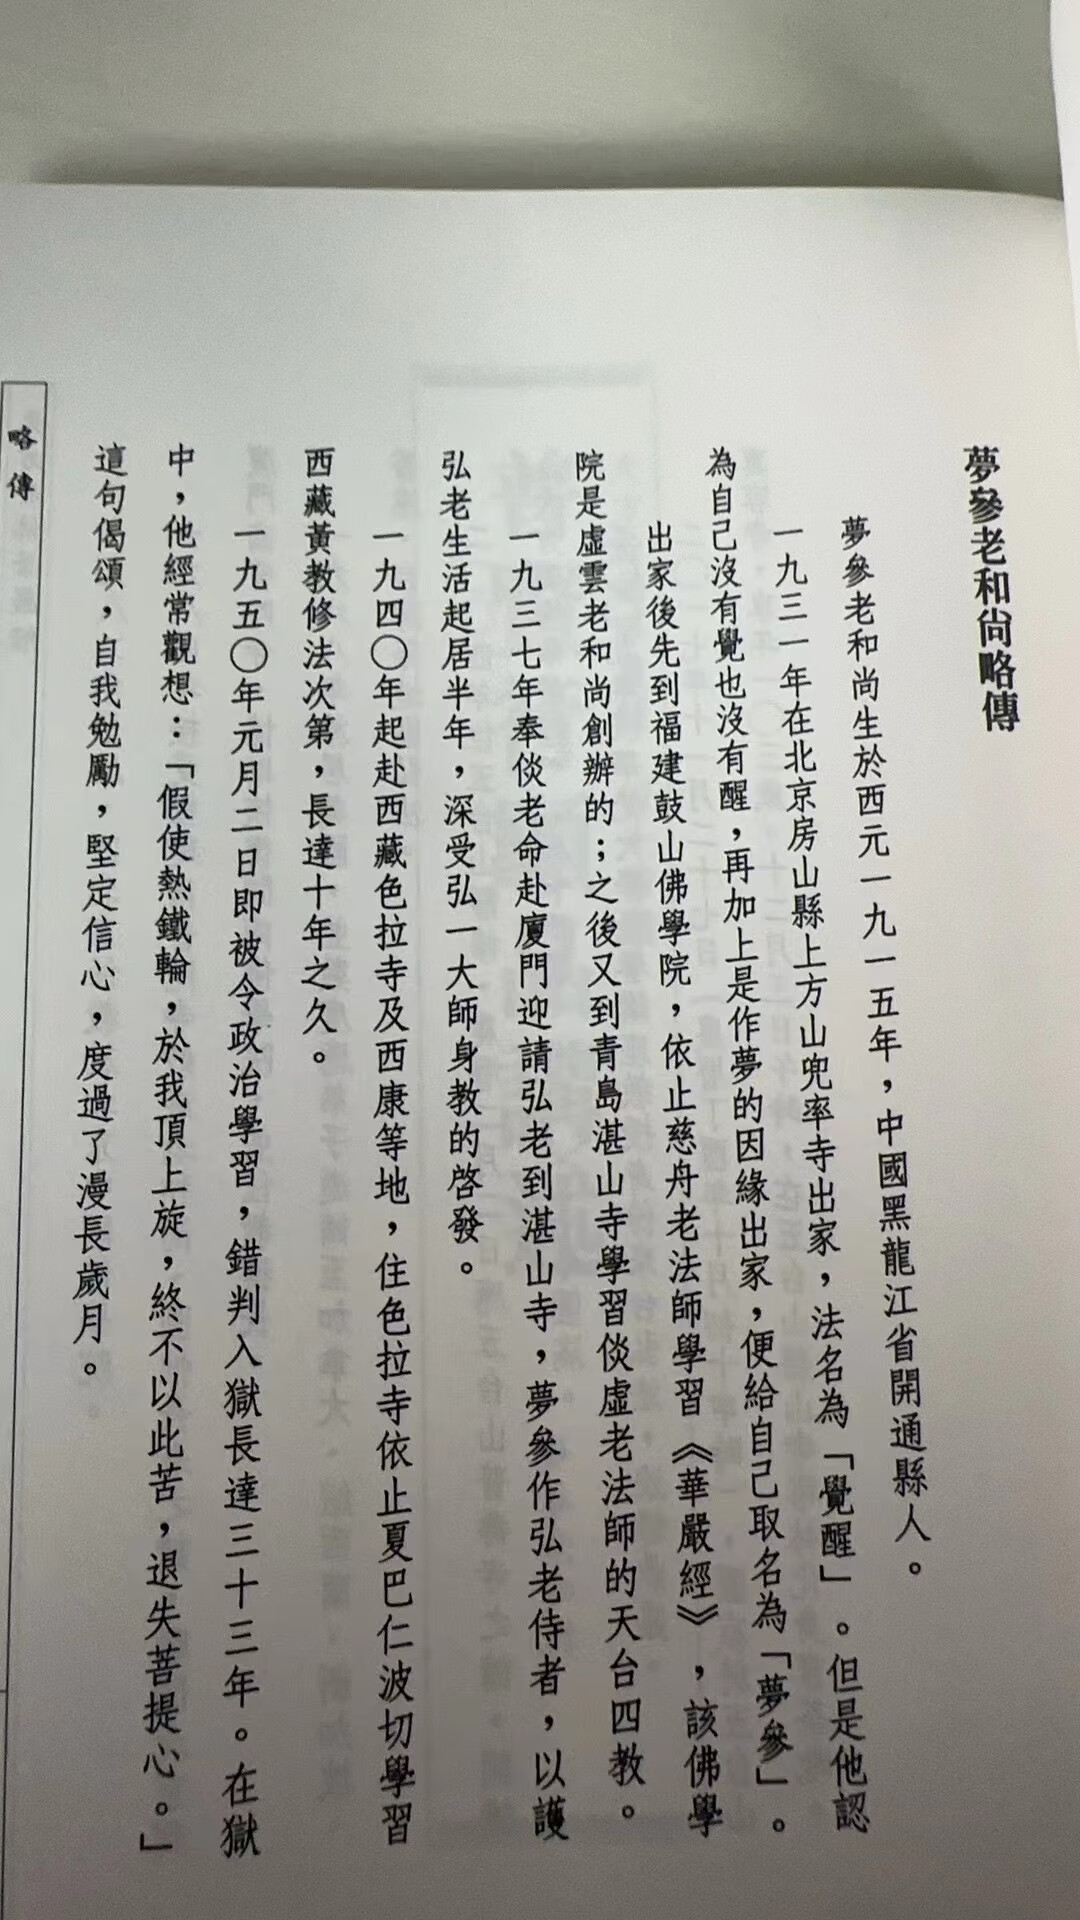 夢參老和尚略傳
夢參老和尚生於西元一九一五年，中國黑龍江省開通縣人。
一九三一年在北京房山縣上方山兜率寺出家，法名為「覺醒」。但是他認
為自己沒有覺也沒有醒，再加上是作夢的因緣出家，便給自己取名為「夢參」。
出家後先到福建鼓山佛學院，依止慈舟老法師學習《華嚴經》，該佛學
院是虛雲老和尚創辦的；之後又到青島湛山寺學習倓虛老法師的天台四教。
一九三七年奉倓老命赴廈門迎請弘老到湛山寺，夢參作弘老侍者，以護
弘老生活起居半年，深受弘一大師身教的啓發。
一九四〇年起赴西藏色拉寺及西康等地，住色拉寺依止夏巴仁波切學習
西藏黃教修法次第，長達十年之久。
一九五〇年元月二日即被令政治學習，錯判入獄長達三十三年。在獄
中，他經常觀想：「假使熱鐵輪，於我頂上旋，終不以此苦，退失菩提心。」
這句偈頌，自我勉勵，堅定信心，度過了漫長歲月。
略傳